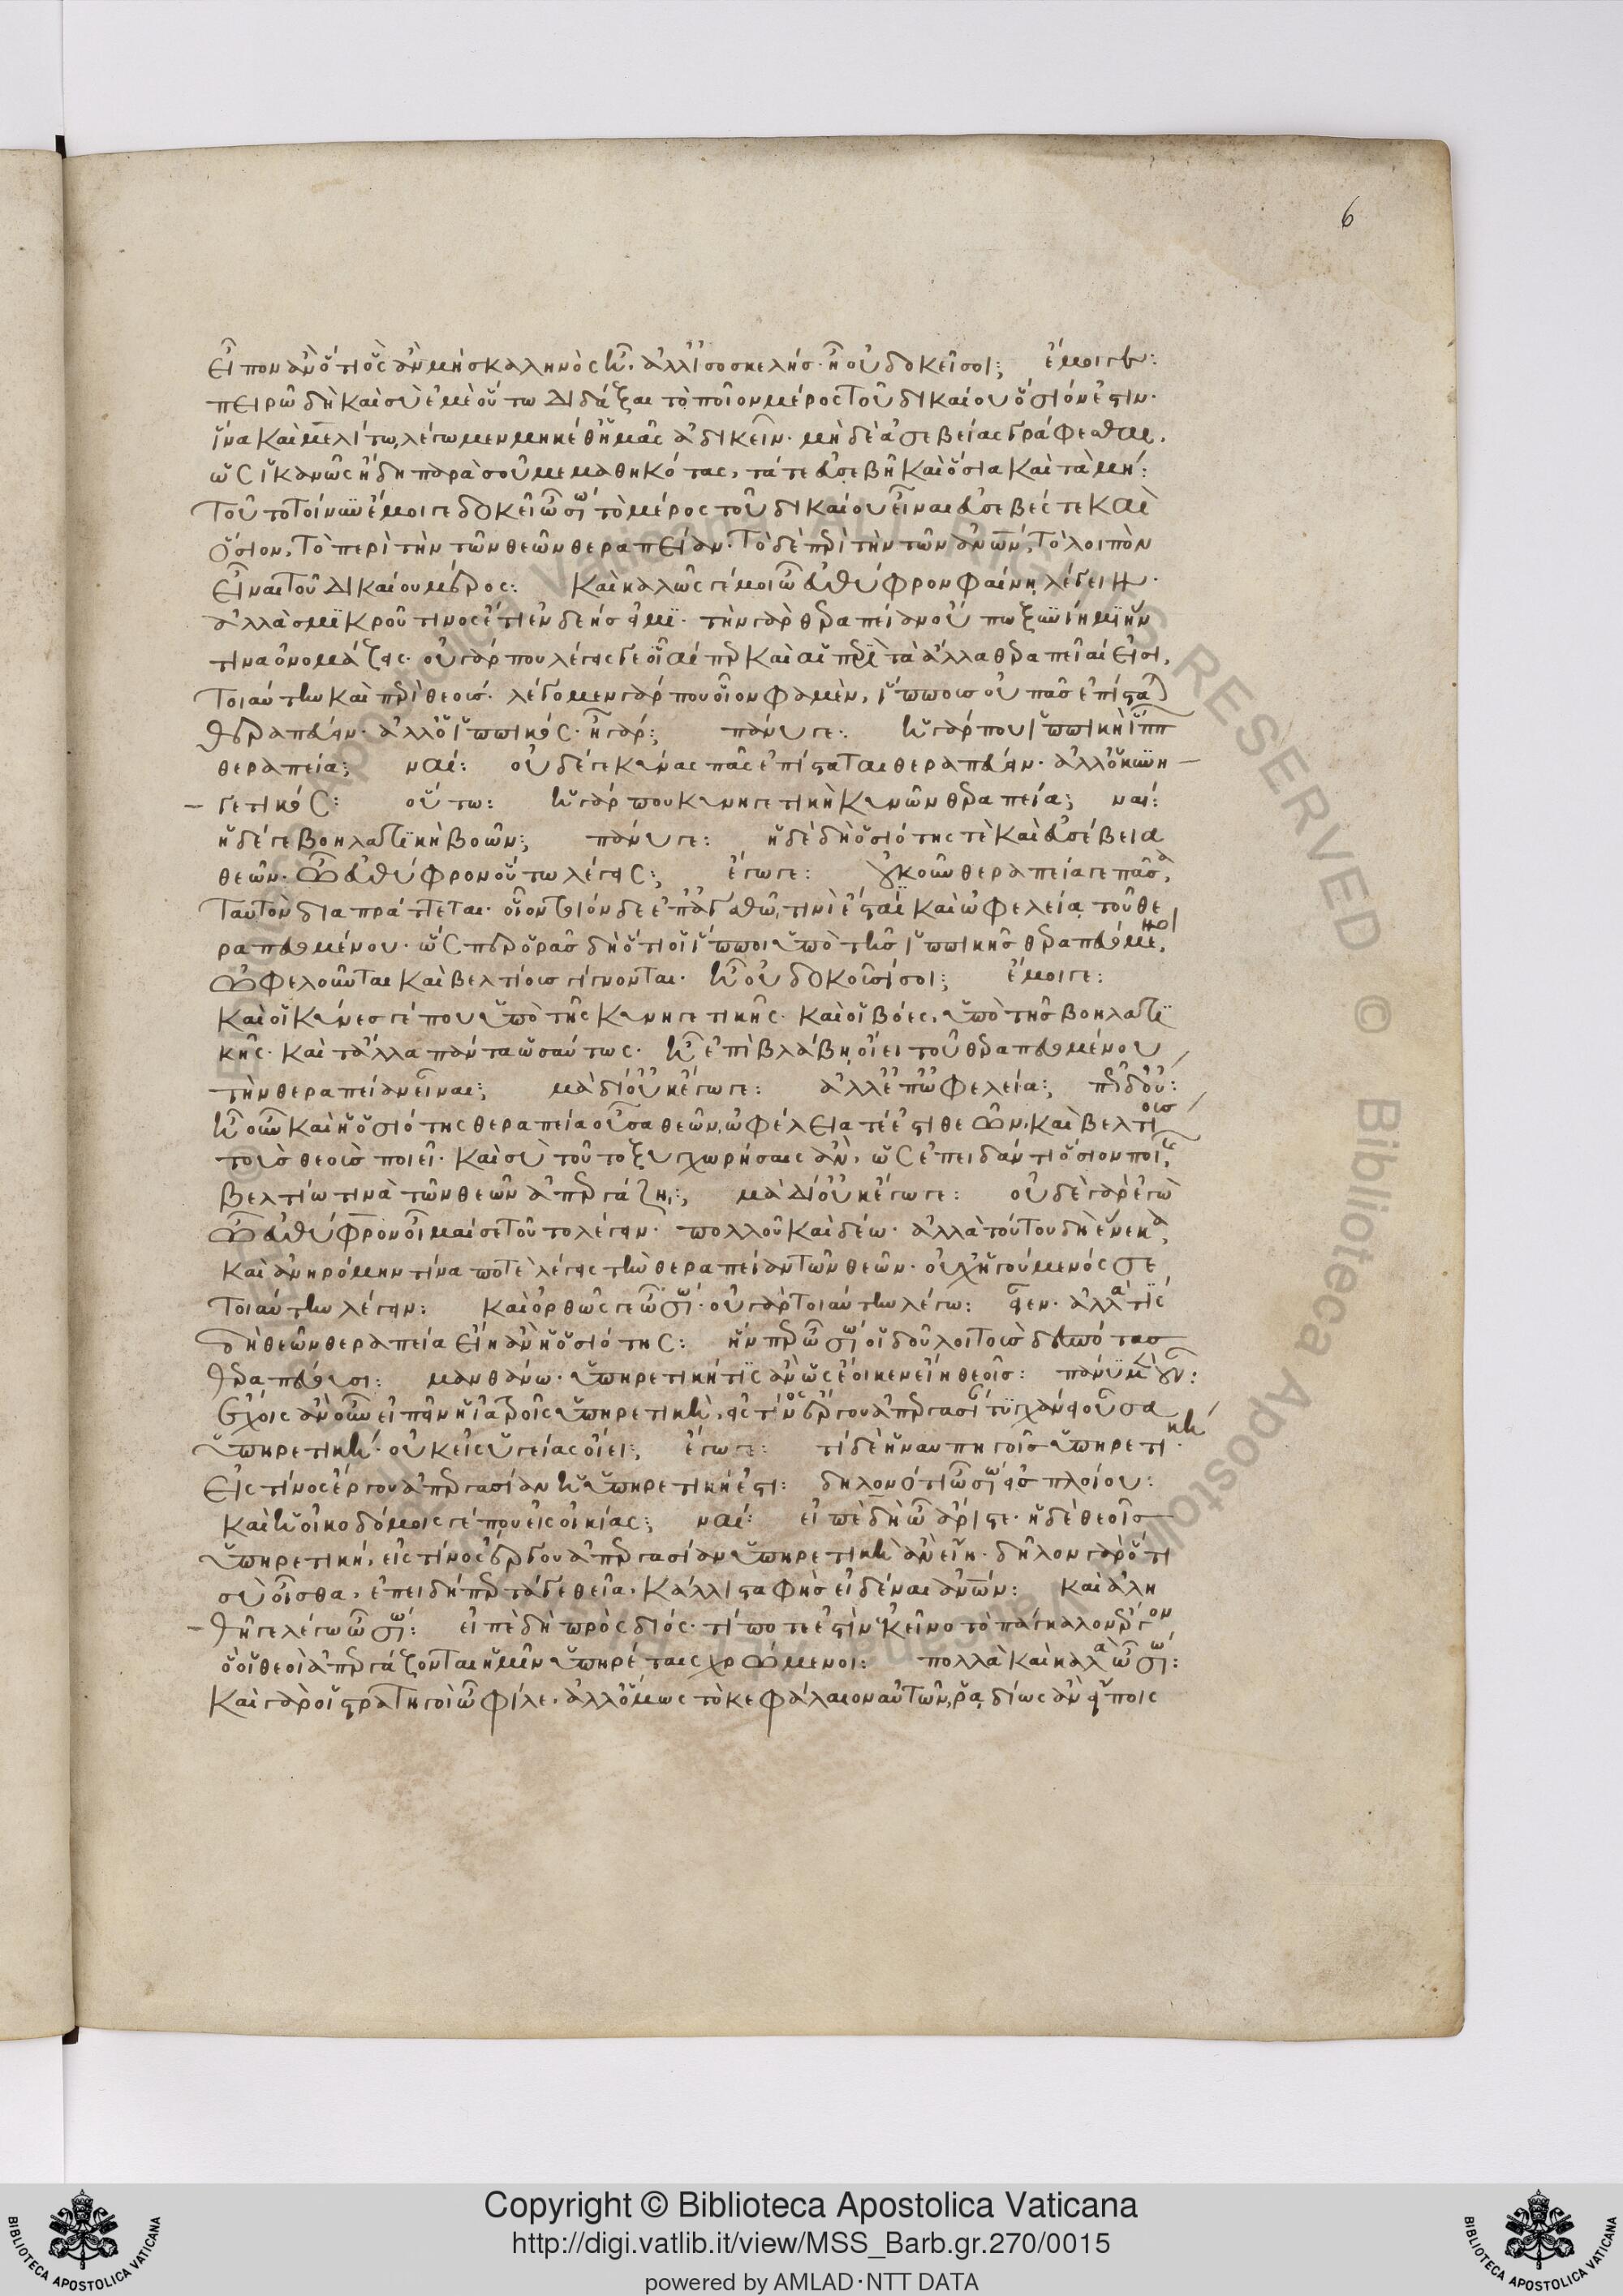 6
εἶπον ἂν ὅτι ὃς ἂν μὴ σκαληνὸς ᾖ. ἀλλ' ἰσοσκελής· ἢ οὐ δοκεῖ σοι; ἔμοιγε:
πειρῶ δὴ καὶ σὺ ἐμὲ οὕτω διδάξαι τὸ ποῖον μέρος τοῦ δικαίου ὅσιόν ἐστιν·
ἵνα καὶ μελίτω λέγωμεν μηκέθ' ἡμᾶς ἀδικεῖν· μὴ δὲ ἀσεβείας γράφεσθαι,
ὡς ἱκανῶς ἤδη παρὰ σοῦ μεμαθηκότας, τά τε εὐσεβῆ καὶ ὅσια καὶ τὰ μή:
τοῦτο τοίνυν ἔμοιγε δοκεῖ ὦ σώ τὸ μέρος τοῦ δικαίου εἶναι εὐσεβές τε καὶ
ὅσιον, τὸ περὶ τὴν τῶν θεῶν θεραπείαν· τὸ δὲ περὶ τὴν τῶν ἀνων, τὸ λοιπὸν
εἶναι τοῦ δικαίου μέρος: καὶ καλῶς γέ μοι ὦ εὐθύφρον φαίνῃ λέγειν·
ἀλλὰ σμικροῦ τινος ἔτι ἐνδεής εἰμι· τὴν γὰρ θεραπείαν οὔπω ξυνίημι ἥν
τινα ὀνομάζεις· οὐ γάρ που λέγεις γε οἷαί περ καὶ αἱ περὶ τὰ ἄλλα θεραπεῖαί εἰσι,
τοιαύτην καὶ περὶ θεούς· λέγομεν γάρ που οἷον φαμὲν, ἵππους οὐ πᾶς ἐπίσταται
θεραπεύειν· ἀλλ' ὁ ἱππικός· ἦ γάρ; πάνυ γε: ἡ γάρ που ἱππικὴ ἵππ
θεραπεία; ναί: οὐδέ γε κύνας πᾶς ἐπίσταται θεραπεύειν· ἀλλ' ὁ κυνη
γετικός: οὕτω: ἡ γάρ που κυνηγετικὴ κυνῶν θεραπεία; ναί:
ἡ δέ γε βοηλατικὴ βοῶν; πάνυ γε: ἡ δὲ δὴ ὁσιότης τὲ καὶ εὐσέβεια
θεῶν· ὦ εὐθύφρον οὕτω λέγεις; ἔγωγε: οὐκοῦν θεραπεία γε πᾶσα
ταυτὸν διαπράττεται· οἷον τοιόνδε ἐπ' ἀγαθῷ τινὶ ἐστι καὶ ὠφελείᾳ τοῦ θε
ραπευομένου· ὥσπερ ὁρᾷς δὴ ὅτι οἱ ἵπποι ὑπὸ τῆς ἱππικῆς θεραπευόμενοι
ὠφελοῦνται καὶ βελτίους γίγνονται· ἢ οὐ δοκοῦσί σοι; ἔμοιγε:
καὶ οἱ κύνες γέ που ὑπὸ τῆς κυνηγετικῆς· καὶ οἱ βόες, ὑπὸ τῆς βοηλατι
κῆς· καὶ τἄλλα πάντα ὡσαύτως· ἢ ἐπὶ βλάβῃ οἴει τοῦ θεραπευομένου
τὴν θεραπείαν εἶναι; μὰ δί' οὐκ ἔγωγε: ἀλλ' ἐπ' ὠφελείᾳ; πῶς δ' οὔ:
ἢ οὖν καὶ ἡ ὁσιότης θεραπεία οὖσα θεῶν, ὠφέλειά τέ ἐστι θεῶν, καὶ βελτίους
τοὺς θεοὺς ποιεῖ· καὶ σὺ τοῦτο ξυγχωρήσαις ἂν, ὡς ἐπειδάν τι ὅσιον ποιῇς
βελτίω τινὰ τῶν θεῶν ἀπεργάζῃ; μὰ δί' οὐκ ἔγωγε: οὐδὲ γὰρ ἐγὼ
ὦ εὐθύφρον οἶμαί σε τοῦτο λέγειν· πολλοῦ καὶ δέω· ἀλλὰ τούτου δὴ ἕνεκα
καὶ ἀνηρόμην τίνα ποτὲ λέγεις τὴν θεραπείαν τῶν θεῶν· οὐχ ἡγούμενός σε
τοιαύτην λέγειν: καὶ ὀρθῶς γε ὦ σώ· οὐ γὰρ τοιαύτην λέγω: εἶεν· ἀλλὰ τίς
δὴ θεῶν θεραπεία εἴη ἂν ἡ ὁσιότης: ἥνπερ ὦ σώ οἱ δοῦλοι τοὺς δεσπότας
θεραπεύουσι: μανθάνω· ὑπηρετική τις ἂν ὡς ἔοικεν εἴη θεοῖς: πάνυ μὲν οὖν:
ἔχοις ἂν οὖν εἰπεῖν ἡ ἰατροῖς ὑπηρετικὴ, εἰς τίνος ἔργου ἀπεργασί τυγχάνει οὖσα
ὑπηρετική· οὐκ εἰς ὑγείας οἴει; ἔγωγε: τί δὲ ἡ ναυπηγοῖς ὑπηρετικὴ·
εἰς τίνος ἔργου ἀπεργασίαν ἡ ὑπηρετική ἐστι: δῆλον ὅτι ὦ σώ εἰς πλοίου:
καὶ ἡ οἰκοδόμοις γέ που εἰς οἰκίας; ναί: εἰπὲ δὴ ὦ ἄριστε· ἡ δὲ θεοῖς
ὑπηρετική, εἰς τίνος ἔργου ἀπεργασίαν ὑπηρετικὴ ἂν εἴη· δῆλον γὰρ ὅτι
σὺ οἶσθα, ἐπειδήπερ τά γε θεῖα, κάλλιστα φῂς εἰδέναι ἀνων: καὶ ἀλη
θῆ γε λέγω ὦ σώ: εἰπὲ δὴ πρὸς διός· τί ποτε ἐστὶν ἐκεῖνο τὸ πάγκαλον ἔργον
ὃ οἱ θεοὶ ἀπεργάζονται ἡμῖν ὑπηρέταις χρώμενοι: πολλὰ καὶ καλὰ ὦ σώ:
καὶ γὰρ οἱ στρατηγοὶ ὦ φίλε· ἀλλ' ὅμως τὸ κεφάλαιον αὐτῶν, ῥαδίως ἂν εἴποις
Copyright © Biblioteca Apostolica Vaticana
http://digi.vatlib.it/view/MSS_Barb.gr.270/0015
powered by AMLAD·NTT DATA
BIBLIOTECA APOSTOLICA VATICANA
BIBLIOTECA APOSTOLICA VATICANA